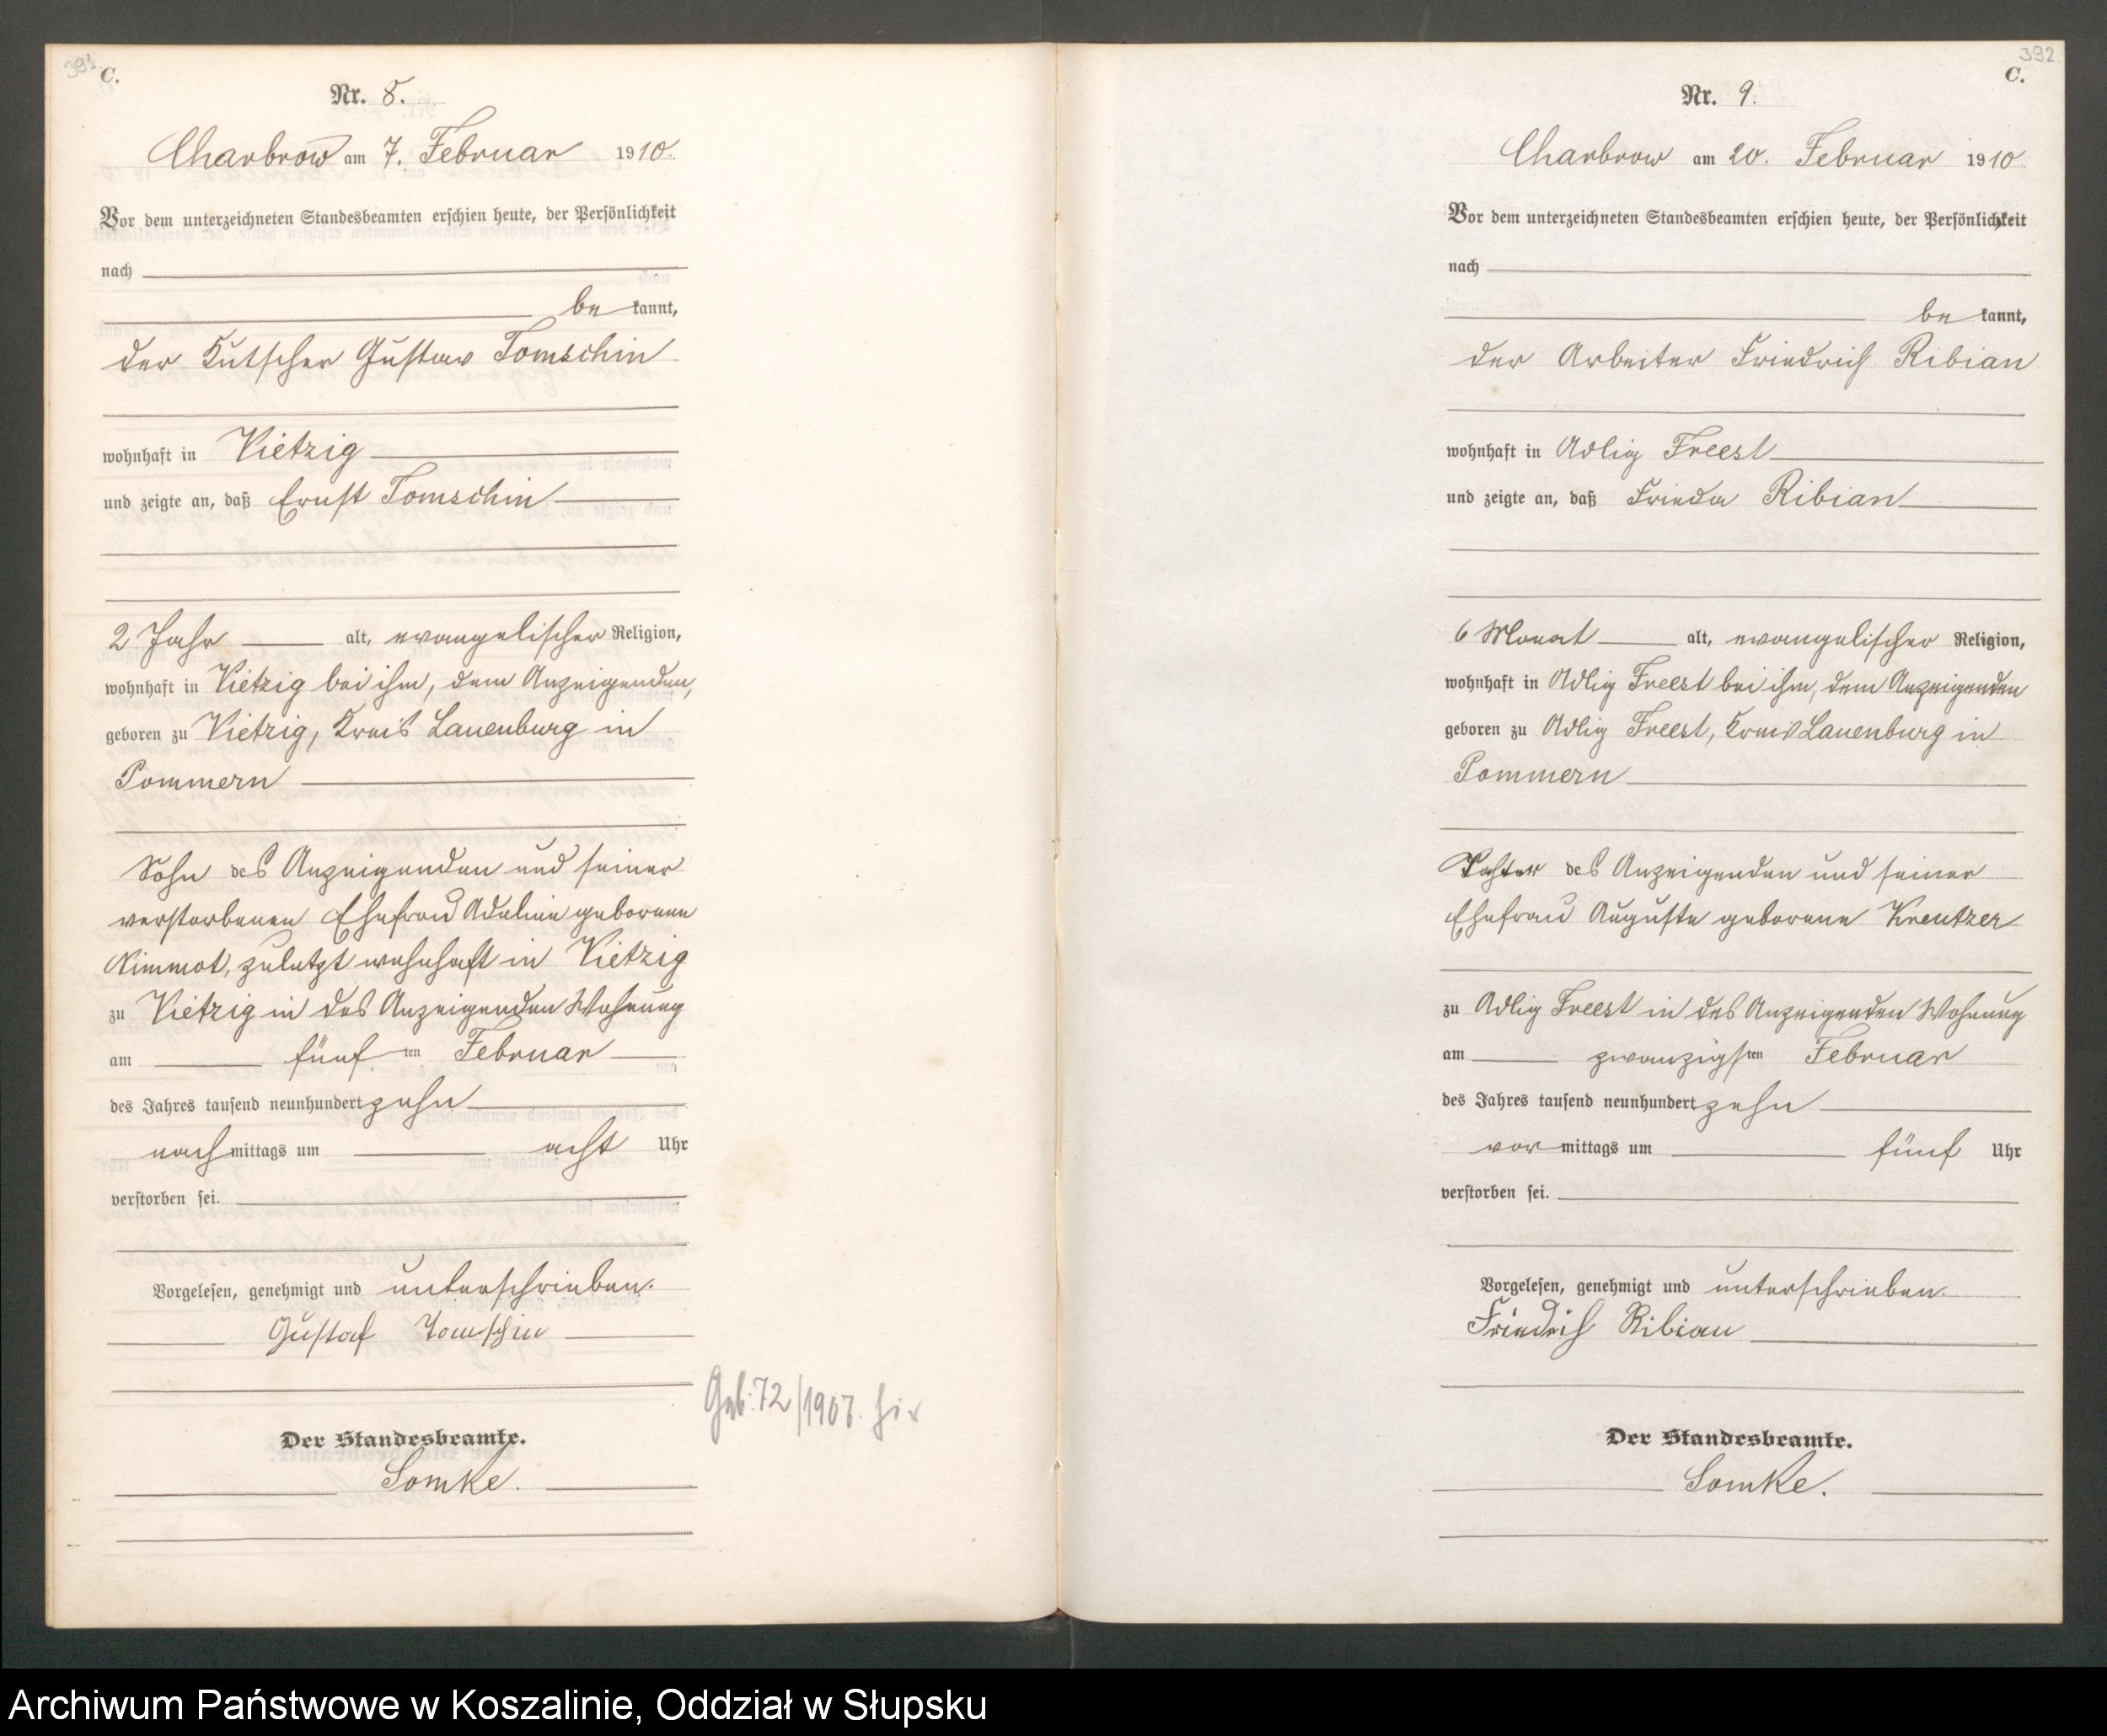 391.
C.
Nr. 8.
Charbrow am 7. Februar 1910.
Vor dem unterzeichneten Standesbeamten erschien heute, der Persönlichkeit
nach
be kannt,
der Kutscher Gustav Tomschin
wohnhaft in Vietzig
und zeigte an, daß Ernst Tomschin
2 Jahr alt, evangelischer Religion,
wohnhaft in Vietzig bei ihm, dem Anzeigenden,
geboren zu Vietzig, Kreis Lauenburg in
Pommern
Sohn des Anzeigenden und seiner
verstorbenen Ehefrau Adeline geborene
Kimmot, zuletzt wohnhaft in Vietzig
zu Vietzig in des Anzeigenden Wohnung
am fünf ten Februar
des Jahres tausend neunhundert zehn
nach mittags um acht Uhr
verstorben sei.
Vorgelesen, genehmigt und unterschrieben.
Gustaf Tomschin
Geb. 72/1907. hier
Der Standesbeamte.
Lomke.
392.
C.
Nr. 9.
Charbrow am 20. Februar 1910
Vor dem unterzeichneten Standesbeamten erschien heute, der Persönlichkeit
nach
be kannt,
der Arbeiter Friedrich Ribian
wohnhaft in Adlig Freest
und zeigte an, daß Frieda Ribian
6 Monat alt, evangelischer Religion,
wohnhaft in Adlig Freest bei ihm, dem Anzeigenden
geboren zu Adlig Freest, Kreis Lauenburg in
Pommern
Tochter des Anzeigenden und seiner
Ehefrau Auguste geborene Kreutzer
zu Adlig Freest in des Anzeigenden Wohnung
am zwanzigsten Februar
des Jahres tausend neunhundert zehn
vor mittags um fünf Uhr
verstorben sei.
Vorgelesen, genehmigt und unterschrieben.
Friedrich Ribian
Der Standesbeamte.
Lomke.
Archiwum Państwowe w Koszalinie, Oddział w Słupsku